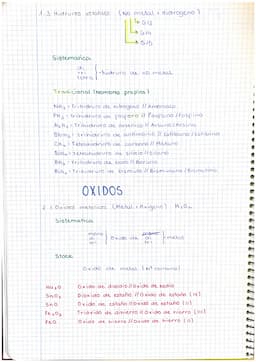 1.3 Hidruros volátiles (No metal + Hidrógeno)
G13
G14
G15
Sistemática
di
tri
tetra
-hidruro de no metal
Tradicional (nombres propios)
NH₃ - Trihidruro de nitrógeno // Amoniaco
PH₃ - Trihidruro de fósforo // Fosfina
AsH₃ - Trihidruro de arsénico // Arsina
SbH₃ - Trihidruro de antimonio // Estibina
CH₄ - Tetrahidruro de carbono // Metano
SiH₄ - Tetrahidruro de silicio // Silano
BH₃ - Trihidruro de boro // Borano
BiH₃ - Trihidruro de bismuto // Bismutina
OXIDOS
2.1 Óxidos metálicos (Metal + Oxígeno)
Sistemática
mono
di
tri
Oxido de
di
metal
Stock
Oxido de metal (nº romano)
Na₂O Oxido de disodio // Oxido de sodio
SnO₂ Dioxido de estaño // Oxido de estaño (IV)
SnO Oxido de estaño // Oxido de estaño (II)
Fe₂O₃ Trioxido de dihierro // Oxido de hierro (III)
FeO Oxido de hierro // Oxido de hierro (II)